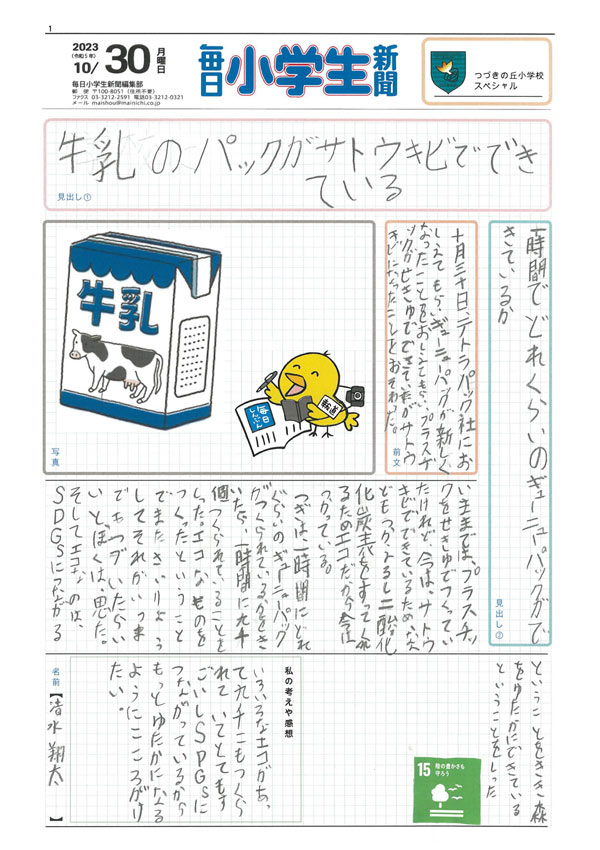 1
2023
(令和5年)
10/30
月曜日
毎日小学生新聞編集部
郵便 〒100-8051(住所不要)
ファクス 03-3212-2591 電話03-3212-0321
メール maishou@mainichi.co.jp
毎日小学生新聞
つづきの丘小学校
スペシャル
牛乳のパックがサトウキビででき
ている
見出し①
一時間でどれくらいのギューニューパックがで
きているか
見出し②
十月三十日、テトラパック社にお
しえてもらい、ギューニューパックが新しく
なったことをおしえてもらい、プラスチ
ックがせきゆでできていたがサトウ
キビになったことをおそわった。
前文
牛乳
毎日
しんぶん
報道
写真
いままでは、プラスチッ
クをせきゆでつくってい
たけれど、今は、サトウ
キビでできているため、
化炭素をすってく
るためエコだから今は
つかっている。
つぎは一時間にどれ
ぐらいのギューニューパック
がつくられているかをき
いたら、一時間に九千
個つくられていることを
しった。エコなものを
つくったということ
でまたさいりよう
してそれがいつま
でもつづいたらい
いとぼくは、思った。
そしてエコなのは、
SDGSにつながる
ということをきき森
をゆたかにできている
ということをしった
15 陸の豊かさも
守ろう
私の考えや感想
いろいろなエコがあっ
て九千こもつくら
れていてとてもす
ごいしSDGSに
つながっているから
もっとゆたかになる
ようにこころがけ
たい。
名前【清水翔太】